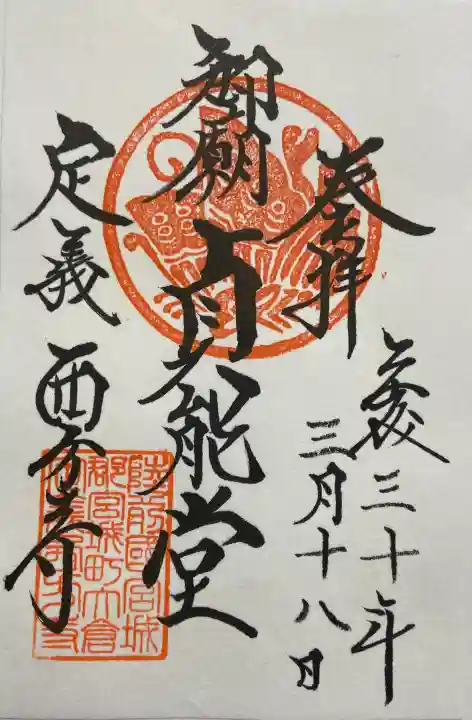 奉拝
平成三十年
三月十八日
御廟 貞能堂
定義 西方寺
陸前國宮城
郡宮城町大倉